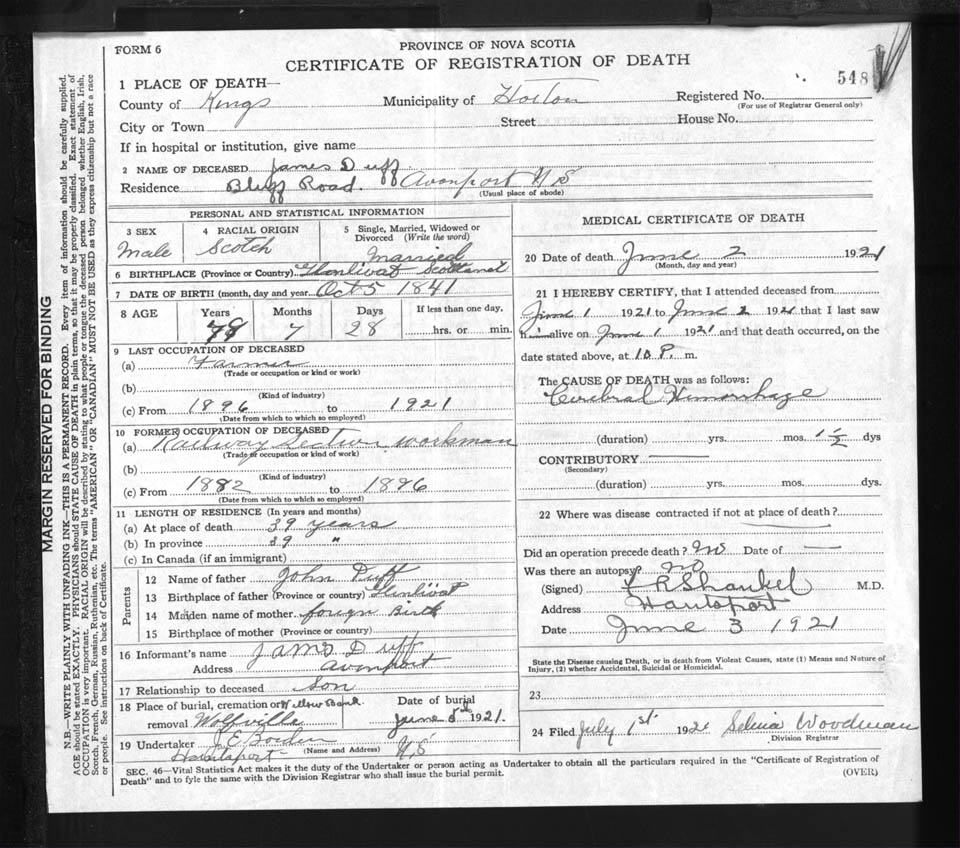 FORM 6
PROVINCE OF NOVA SCOTIA
CERTIFICATE OF REGISTRATION OF DEATH
548
1 PLACE OF DEATH—
County of Kings Municipality of Horton Registered No.
(For use of Registrar General only)
City or Town Street House No.
If in hospital or institution, give name
2 NAME OF DECEASED James Duff
Residence Bluff Road. Avonport N S
(Usual place of abode)
PERSONAL AND STATISTICAL INFORMATION
3 SEX Male
4 RACIAL ORIGIN Scotch
5 Single, Married, Widowed or Divorced (Write the word) Married
6 BIRTHPLACE (Province or Country) Glenlivat Scotland
7 DATE OF BIRTH (month, day and year) Oct 5 1841
8 AGE Years Months Days If less than one day,
78 7 28 hrs. or min.
9 LAST OCCUPATION OF DECEASED
(a) Farmer
(Trade or occupation or kind or work)
(b)
(Kind of industry)
(c) From 1896 to 1921
(Date from which to which so employed)
10 FORMER OCCUPATION OF DECEASED
(a) Railway Section workman
(Trade or occupation or kind or work)
(b)
(Kind of industry)
(c) From 1882 to 1896
(Date from which to which so employed)
11 LENGTH OF RESIDENCE (In years and months)
(a) At place of death 39 years
(b) In province 39 "
(c) In Canada (if an immigrant)
Parents
12 Name of father John Duff
13 Birthplace of father (Province or country) Glenlivat
14 Maiden name of mother foreign Birth
15 Birthplace of mother (Province or country)
16 Informant's name James Duff
Address Avonport
17 Relationship to deceased Son
18 Place of burial, cremation or removal Willow Bank Wolfville
Date of burial June 5th 1921.
19 Undertaker E Borden
Hantsport N S
(Name and Address)
MEDICAL CERTIFICATE OF DEATH
20 Date of death June 2 1921
(Month, day and year)
21 I HEREBY CERTIFY, that I attended deceased from
June 1 1921 to June 2 1921 that I last saw
him alive on June 1 1921 and that death occurred, on the
date stated above, at 10 P. m.
The CAUSE OF DEATH was as follows:
Cerebral Hemorrhage
(duration) yrs. mos. 1½ dys
CONTRIBUTORY —
(Secondary)
(duration) yrs. mos. dys.
22 Where was disease contracted if not at place of death?
Did an operation precede death? No Date of —
Was there an autopsy? no
(Signed) Shankel M.D.
Address Hantsport
Date June 3 1921
State the Disease causing Death, or in death from Violent Causes, state (1) Means and Nature of
Injury, (2) whether Accidental, Suicidal or Homicidal.
23
24 Filed July 1st 1921 Selina Woodman
Division Registrar
SEC. 46—Vital Statistics Act makes it the duty of the Undertaker or person acting as Undertaker to obtain all the particulars required in the "Certificate of Registration of
Death" and to fyle the same with the Division Registrar who shall issue the burial permit.
(OVER)
MARGIN RESERVED FOR BINDING
N.B.—WRITE PLAINLY WITH UNFADING INK—THIS IS A PERMANENT RECORD. Every item of information should be carefully supplied.
AGE should be stated EXACTLY. PHYSICIANS should STATE CAUSE OF DEATH in plain terms, so that it may be properly classified. Exact statement of
OCCUPATION is very important. RACIAL ORIGIN will be described by stating to what people or tongue the deceased person belonged whether English, Irish,
Scotch, French, German, Russian, Ruthenian, etc. The terms "AMERICAN" OR "CANADIAN" MUST NOT BE USED as they express citizenship but not a race
or people. See instructions on back of Certificate.